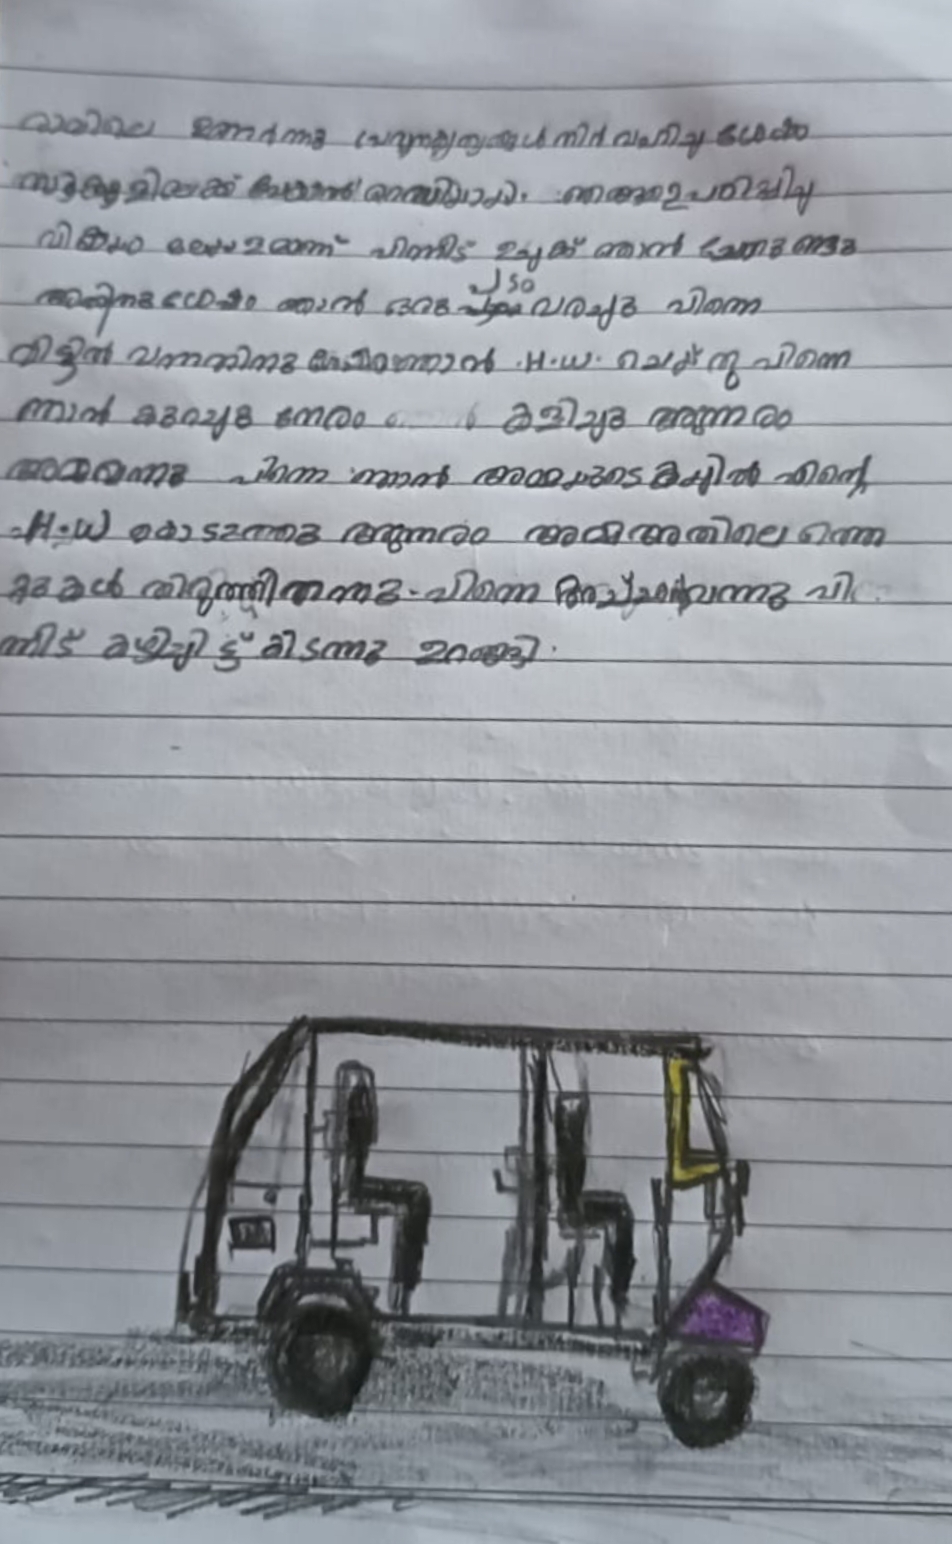 രാവിലെ ഉണർന്നു പ്രഭാതകൃത്യങ്ങൾ നിർവഹിച്ച ശേഷം
സ്കൂളിലേക്ക് പോകാൻ റെഡിയായി. ഞങ്ങളെ പഠിപ്പിച്ച
വിഷയം മലയാളമാണ് പിന്നീട് ഉച്ചക്ക് ഞാൻ ചോറുണ്ടു
അതിനുശേഷം ഞാൻ ഒരു പടം വരച്ചു പിന്നെ
വീട്ടിൽ വന്നതിനു ശേഷം ഞാൻ .H.W. ചെയ്തു പിന്നെ
ഞാൻ കുറച്ചു നേരം കളിച്ചു അന്നേരം
അമ്മവന്നു പിന്നെ ഞാൻ അമ്മയുടെ കയ്യിൽ എന്റെ
.H.W കൊടുത്തു അന്നേരം അമ്മ അതിലെ തെറ്റു
കൾ തിരുത്തിതന്നു. പിന്നെ അച്ഛൻ വന്നു പി
ന്നീട് കഴിച്ചിട്ട് കിടന്നു ഉറങ്ങി.